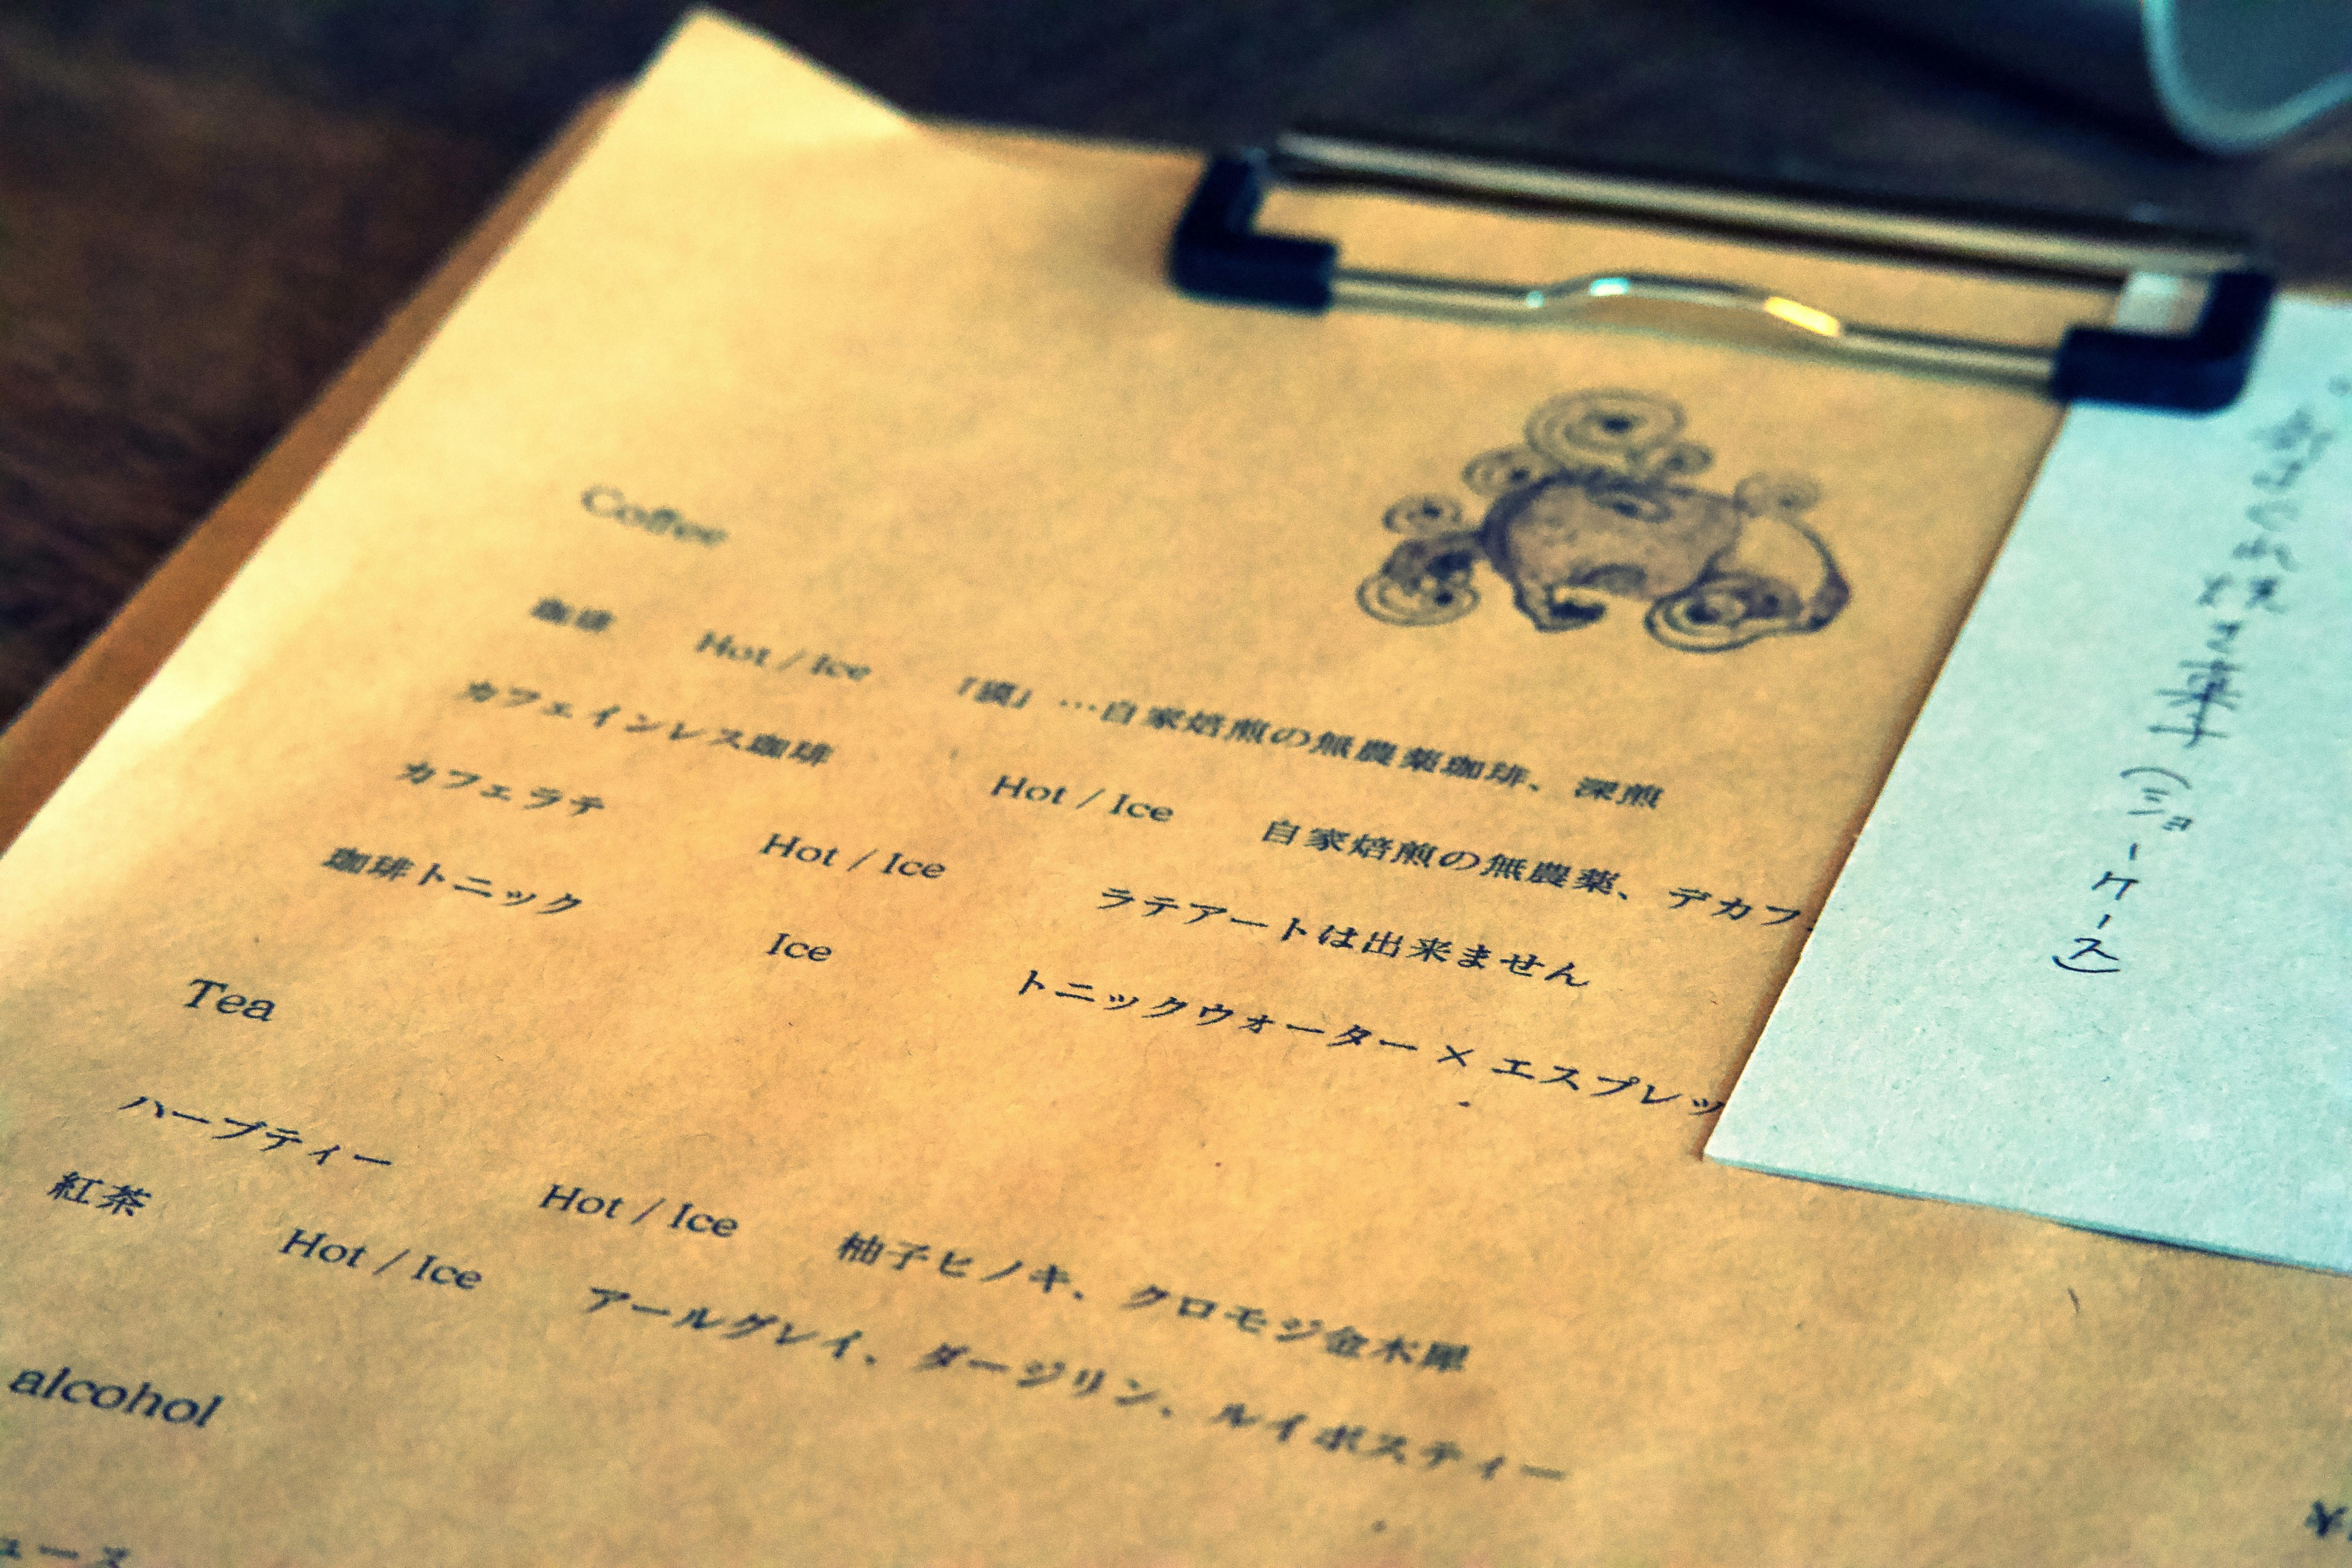 Coffee
珈琲 Hot / Ice 『獏』…自家焙煎の無農薬珈琲、深煎
カフェインレス珈琲 Hot / Ice 自家焙煎の無農薬、デカフ
カフェラテ Hot / Ice ラテアートは出来ません
珈琲トニック Ice トニックウォーター × エスプレッ
Tea
ハーブティー Hot / Ice 柚子ヒノキ、クロモジ金木犀
紅茶 Hot / Ice アールグレイ、ダージリン、ルイボスティー
alcohol
ュース
¥
(ショーケース)